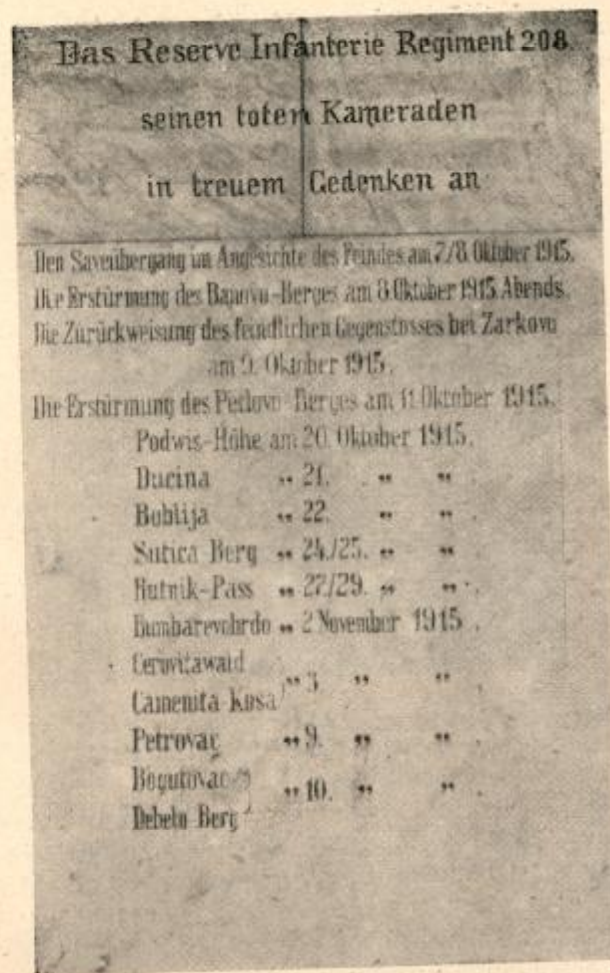 Das Reserve Infanterie Regiment 208
seinen toten Kameraden
in treuem Gedenken an
Den Saveübergang im Angesichte des Feindes am 7/8. Oktober 1915.
Die Erstürmung des Banovo-Berges am 8. Oktober 1915. Abends.
Die Zurückweisung des feindlichen Gegenstosses bei Zarkovo
am 9. Oktober 1915.
Die Erstürmung des Petlovo-Berges am 11. Oktober 1915.
Podwis-Höhe am 20. Oktober 1915.
Ducina „ 21. „ „
Boblija „ 22. „ „ .
Sutica Berg „ 24./25. „ „ .
Rutnik-Pass „ 27/29. „ „ .
Bumbarevobrdo „ 2 November 1915 .
Cerovitawald
Camenita Kosa „ 3. „ „ .
Petrovac „ 9. „ „ .
Bogutovac
„ 10. „ „ .
Debelo Berg